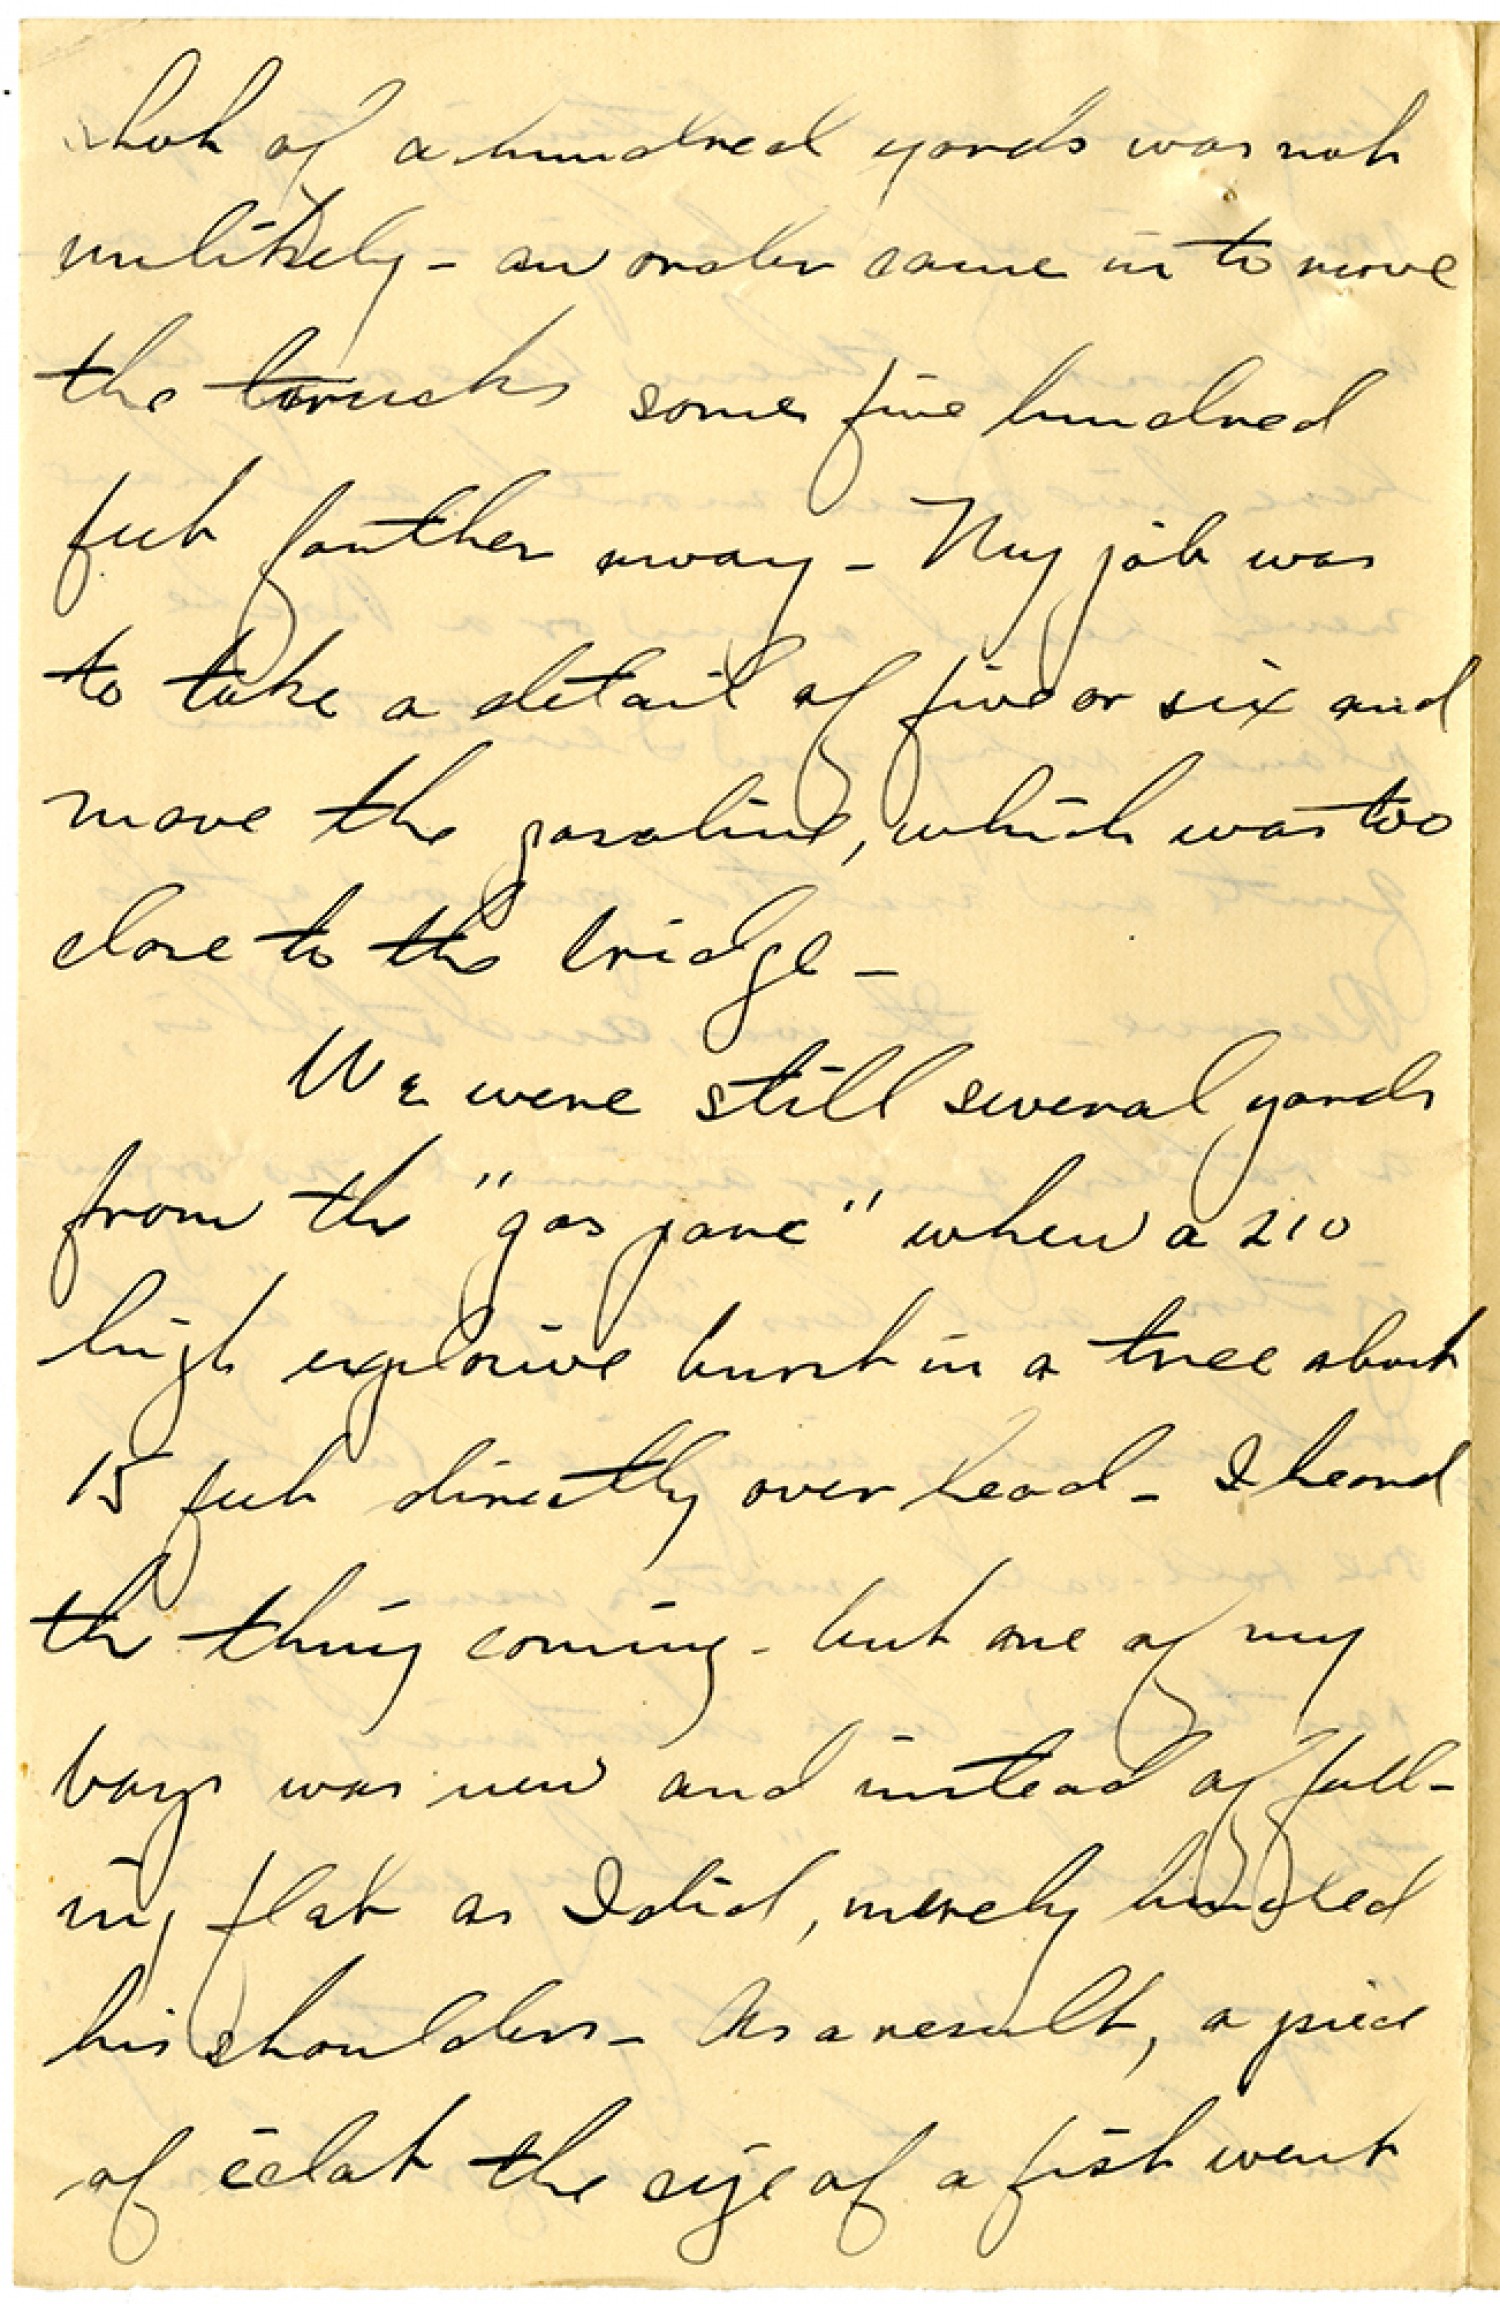 shot of a hundred yards was not
unlikely - an order came in to move
the trucks some five hundred
feet farther away - My job was
to take a detail of five or six and
move the gasoline, which was too
close to the bridge -
We were still several yards
from the "gas parc" when a 210
high explosive burst in a tree about
15 feet directly over head - I heard
the thing coming - but one of my
boys was new and instead of fall-
ing flat as I did, merely hunched
his shoulders - As a result, a piece
of éclat the size of a fist went